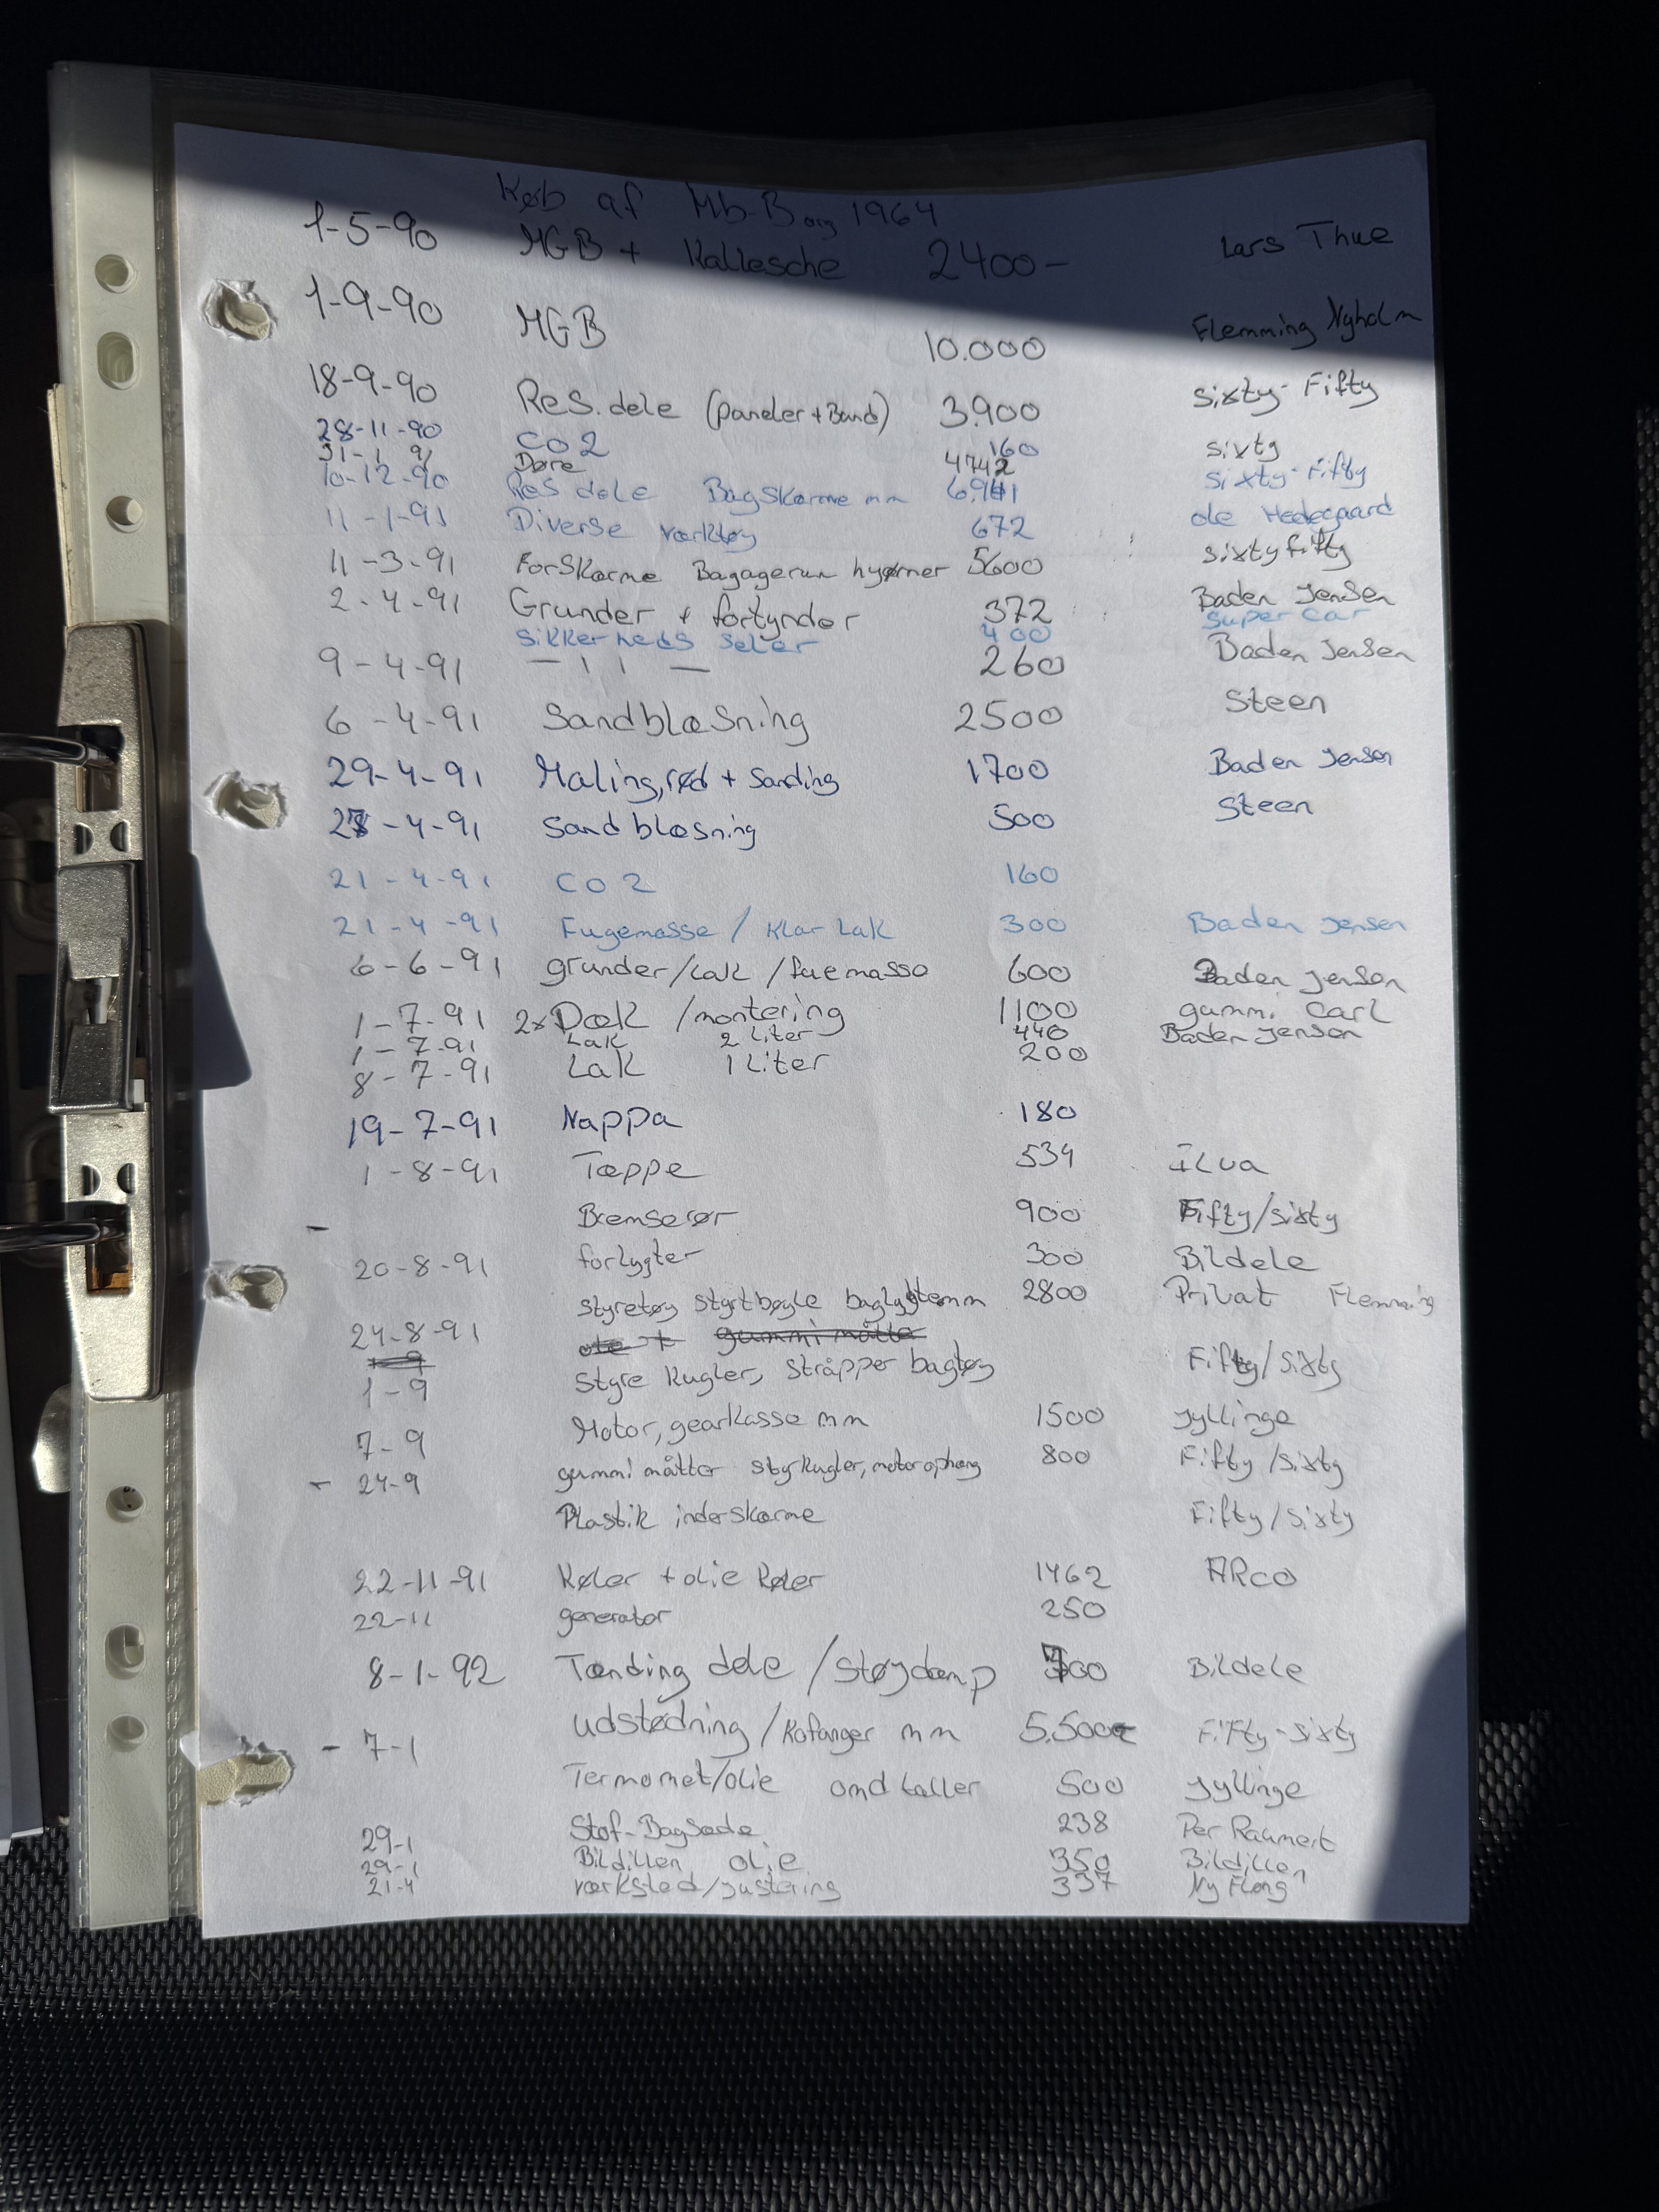 Køb af Mb-B org 1964
1-5-90 MGB + Kallesche 2400- Lars Thue
1-9-90 MGB 10.000 Flemming Nyholm
18-9-90 Res. dele (paneler + Bund) 3.900 sixty-Fifty
28-11-90 CO2 160 sixty
31-1 91 Døre 4742
10-12-90 Res dele Bagskærme mm 6.941 sixty-Fifty
11-1-91 Diverse værktøj 672 ole Hedegaard
11-3-91 Forskærme Bagagerum hyørner 5600 sixtyfifty
2-4-91 Grunder + fortynder 372 Baden Jensen
sikkerheds seler 400 super car
9-4-91 — 11 — 260 Baden Jensen
6-4-91 Sandblæsning 2500 Steen
29-4-91 Maling, rød + Sanding 1700 Baden Jensen
-4-91 Sandblæsning 500 Steen
21-4-91 CO2 160
21-4-91 Fugemasse / Klar Lak 300 Baden Jensen
6-6-91 grunder/Lak /fuemasse 600 Baden Jensen
1-7-91 2x Dæk /montering 1100 gummi Carl
1-7-91 Lak 2 Liter 440 Baden Jensen
8-7-91 Lak 1 Liter 200
19-7-91 Nappa 180
1-8-91 Tæppe 534 ILva
- Bremserør 900 Fifty/sixty
20-8-91 forlygter 300 Bildele
styretøy styrtbøyle baglygtemm 2800 Privat Flemming
24-8-91 gummi måtte
1-9 styre Kugler, stråpper bagtøy Fifty/sixty
7-9 Motor, gearkasse mm 1500 Jyllinge
- 24-9 gummi måtter styrkugler, motorophæng 800 Fifty/sixty
Plastik inderskærme Fifty/sixty
22-11-91 Køler + olie køler 1462 ARco
22-11 generator 250
8-1-92 Tænding dele /støjdæmp 700 Bildele
- 7-1 udstødning /Kofanger mm 5.500 Fifty-sixty
Termomet/olie omd taller 500 Jyllinge
29-1 Stof-Bagsæde 238 Per Raumert
29-1 Bildillen olie 350 Bildillen
21-4 værksted/justering 337 Ny Fløng